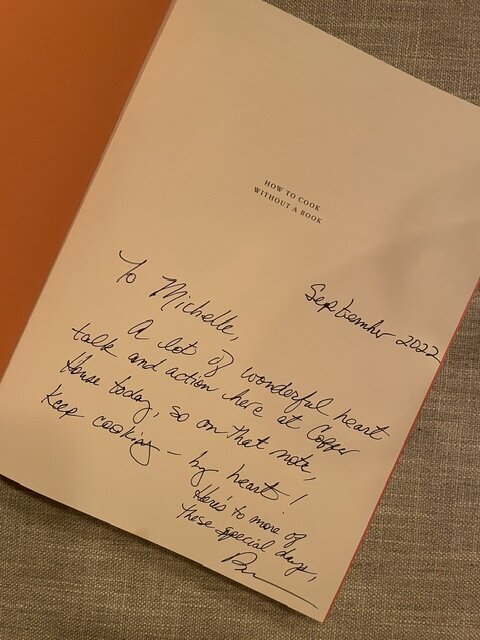 HOW TO COOK
WITHOUT A BOOK
September 2022
To Michelle,
A lot of wonderful heart
talk and action here at Copper
House today, so on that note,
Keep cooking – by heart!
Here's to more of
these special days,